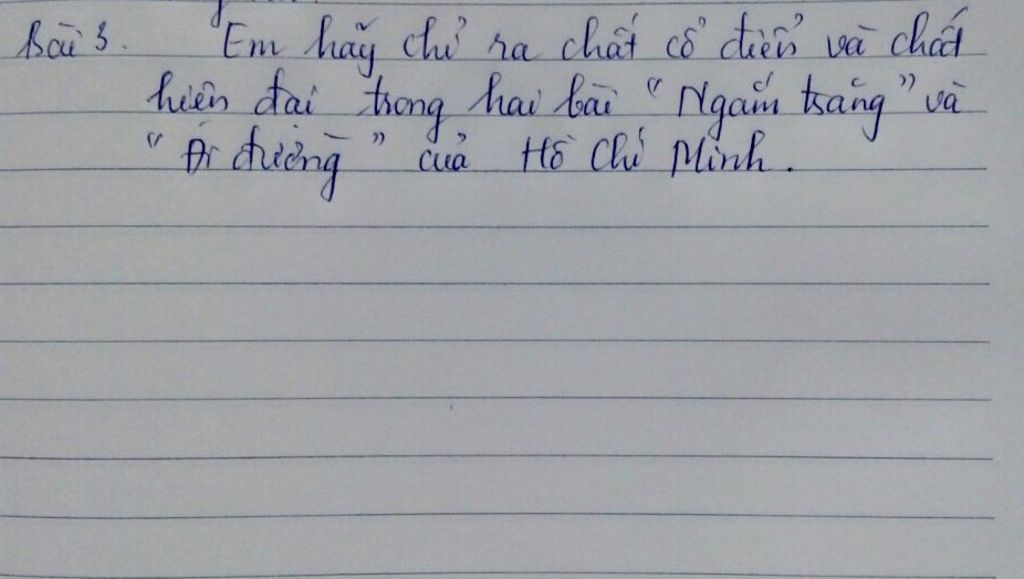 Bài 3. Em hãy chỉ ra chất cổ điển và chất
hiện đại trong hai bài "Ngắm trăng" và
"Đi đường" của Hồ Chí Minh.